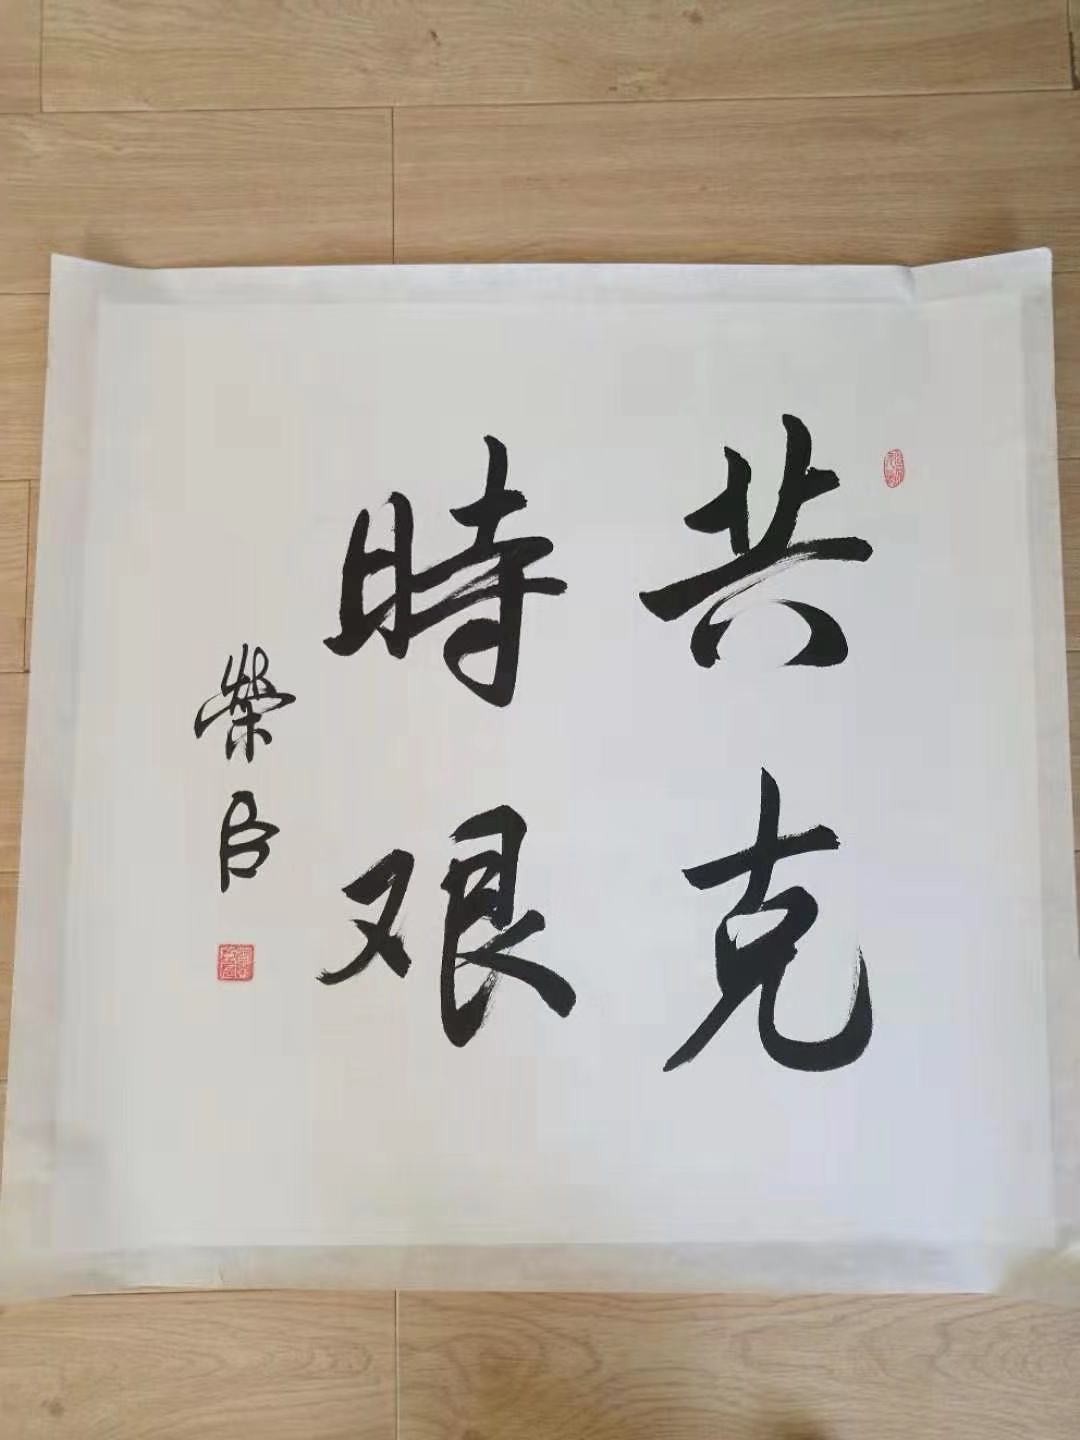 共克
時艰
榮臣